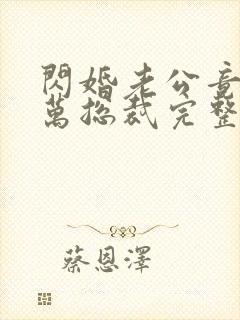 閃婚老公竟
萬總裁完整
蔡恩澤